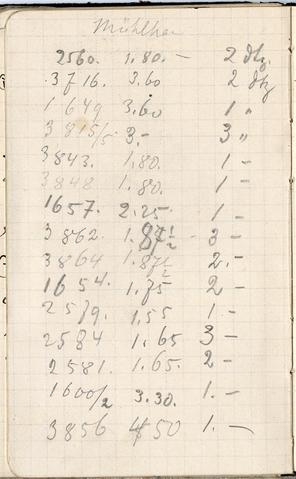 2560. 1.80. — 2 dtz.
3716. 3.60 2 dtz
1649 3.60 1 "
3815/5 3.- 3 "
3843. 1.80. 1 –
3848 1.80. 1 –
1657. 2.25. 1 –
3862. 1.87½ 3 –
3864 1.87½ 2.–
1654. 1.75 2 –
2579. 1.55 1 –
2584 1.65 3 –
2581. 1.65. 2 –
1600/2 3.30. 1.–
3856 4.50 1.—